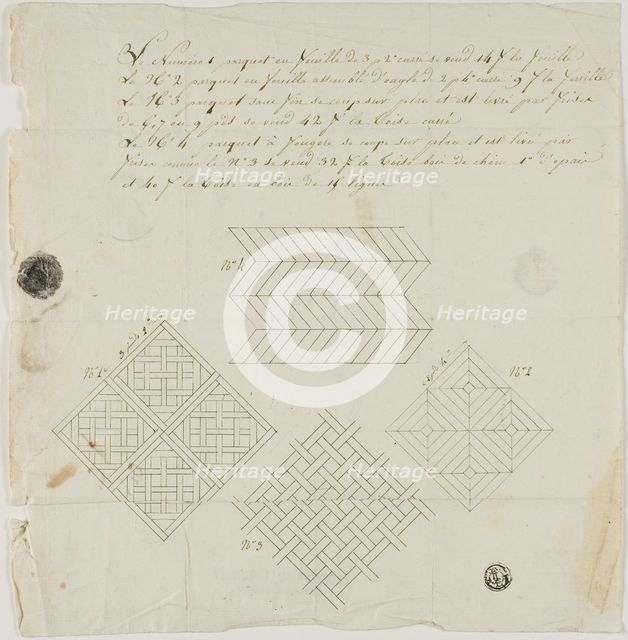 Le Numéro 1 parquet en feuille de 3 p 2 carré se vend 14 f la feuille
Le N° 2 parquet en feuille assemblé d 2 carré 9 f la feuille
Le N° 3 parquet sans fin se coup sur plan et est livré par
de 6, 7 ou 9 pds se vend 42 f la toise carré
Le N° 4 parquet à fougere se coupe sur plan et est livré par
comme le N° 3 se vend 32 f la toise bois de chêne
et 40 f la toise en bois de 15 lignes
N° 4
3 pieds 2
N° 1
N° 2
N° 3
Heritage
Heritage
Heritage
Heritage
Heritage
Heritage
©